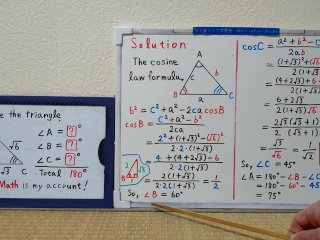 e the triangle
√6
√3
∠A = ?°
∠B = ?°
∠C = ?°
Total 180°
Math is my account!
Solution
The cosine
law formula,
A
b
c
B
a
C
b² = c² + a² - 2ca cosB
cosB = c² + a² - b² / 2ca
= 2² + (1+√3)² - (√6)² / 2·2·(1+√3)
= 4 + (4+2√3) - 6 / 2·2(1+√3)
= 2(1+√3) / 2·2(1+√3) = 1/2
2
√3
B
1
So, ∠B = 60°
cosC = a² + b² - c
2ab
= (1+√3)² + (√6
2(1+√3)
= (4+2√3) + 6
2(1+√3)
= 6+2√3
2(1+√3)
= √3(√3+1)
(√3+1)
= √3 / √6 = 1/√2
So, ∠C = 45°
∠A = 180° - ∠B - ∠C
= 180° - 60° - 45
= 75°